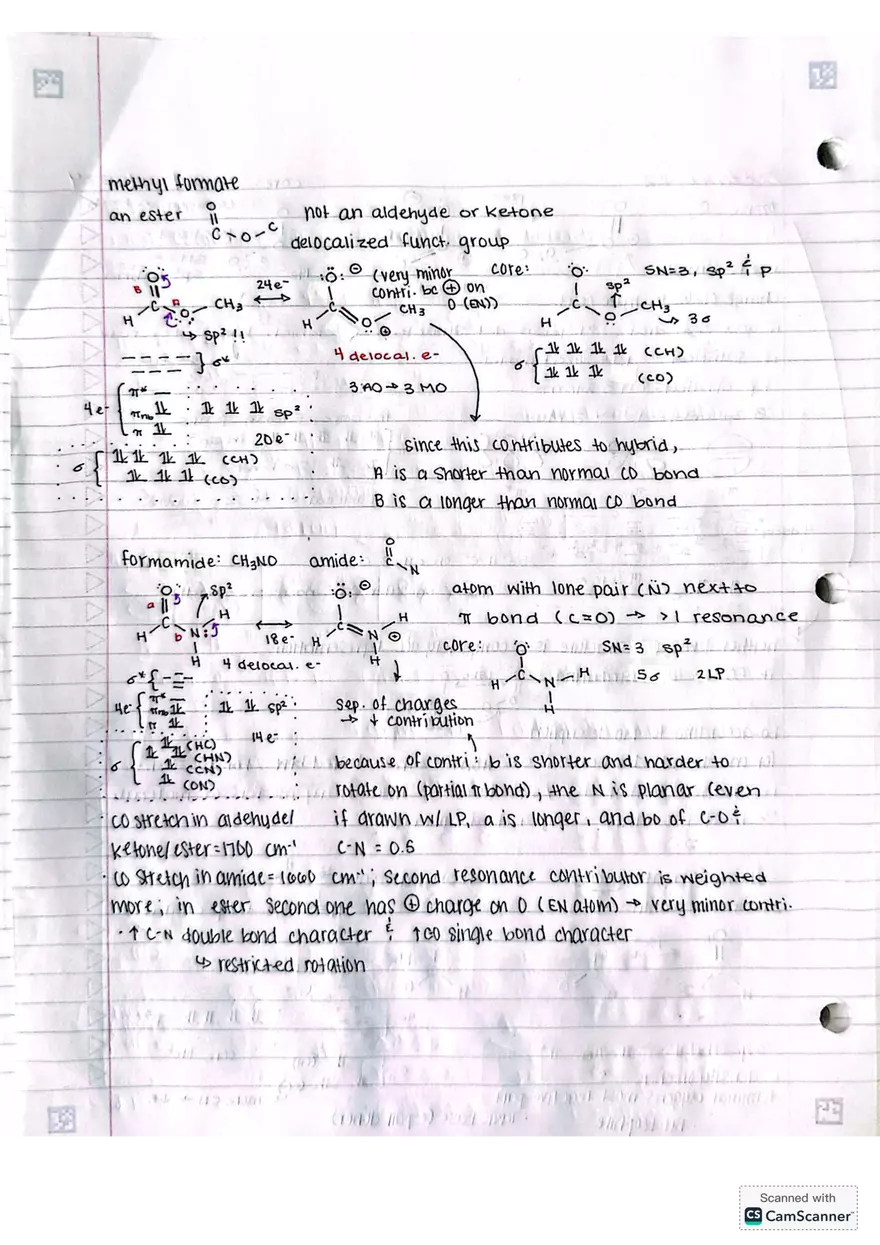 methyl formate
an ester O C O C not an aldehyde or ketone
delocalized funct. group
O B C A O CH3 H 24e- :Ö: ⊖ (very minor core: O SN=3, sp² & p
contri. bc ⊕ on
O (EN))
C O CH3 H ⊕ C sp² O CH3 H ↳ 3σ
↳ sp² !!
} σ* 4 delocal. e- σ { 1L 1L 1L 1L (CCH)
1L 1L 1L (CO)
4e- { π* 3 AO → 3 MO
πnb 1L 1L 1L 1L sp²
π 1L
20e- since this contributes to hybrid,
σ { 1L 1L 1L 1L (CCH) A is a shorter than normal CO bond
1L 1L 1L (CO)
B is a longer than normal CO bond
formamide: CH3NO amide: O C N
O a C b N: H H H sp² :Ö: ⊖ atom with lone pair (N̈) next to
18e- H C N H H ⊕ π bond (C=O) → >1 resonance
4 delocal. e- core: O SN=3 sp²
H C N H H 5σ 2LP
σ* {
4e- { π* πnb 1L π 1L 1L 1L sp² sep. of charges
→ ↓ contribution
14e-
σ { 1L (HC) because of contri: b is shorter and harder to
1L 1L (CHN)
1L (CCN) rotate on (partial π bond), the N is planar (even
1L (ON)
· CO stretch in aldehyde/ if drawn w/ LP, a is longer, and bo of C-O &
ketone/ester=1760 cm⁻¹ C-N = 0.5
· CO stretch in amide = 1660 cm⁻¹; second resonance contributor is weighted
more; in ester second one has ⊕ charge on O (EN atom) → very minor contri.
· ↑ C-N double bond character & ↑CO single bond character
↳ restricted rotation
Scanned with
CS CamScanner